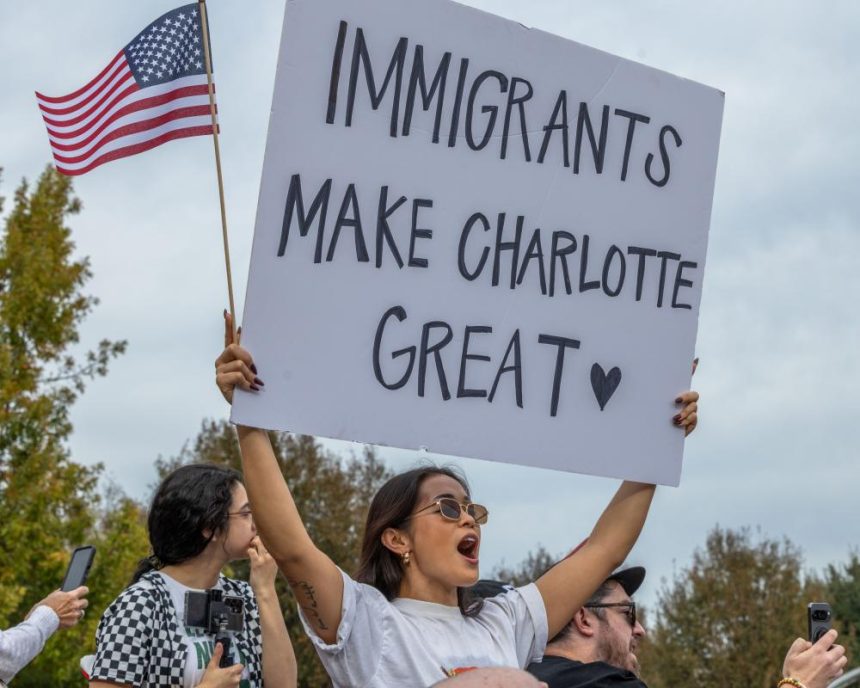 IMMIGRANTS
MAKE CHARLOTTE
GREAT ♥